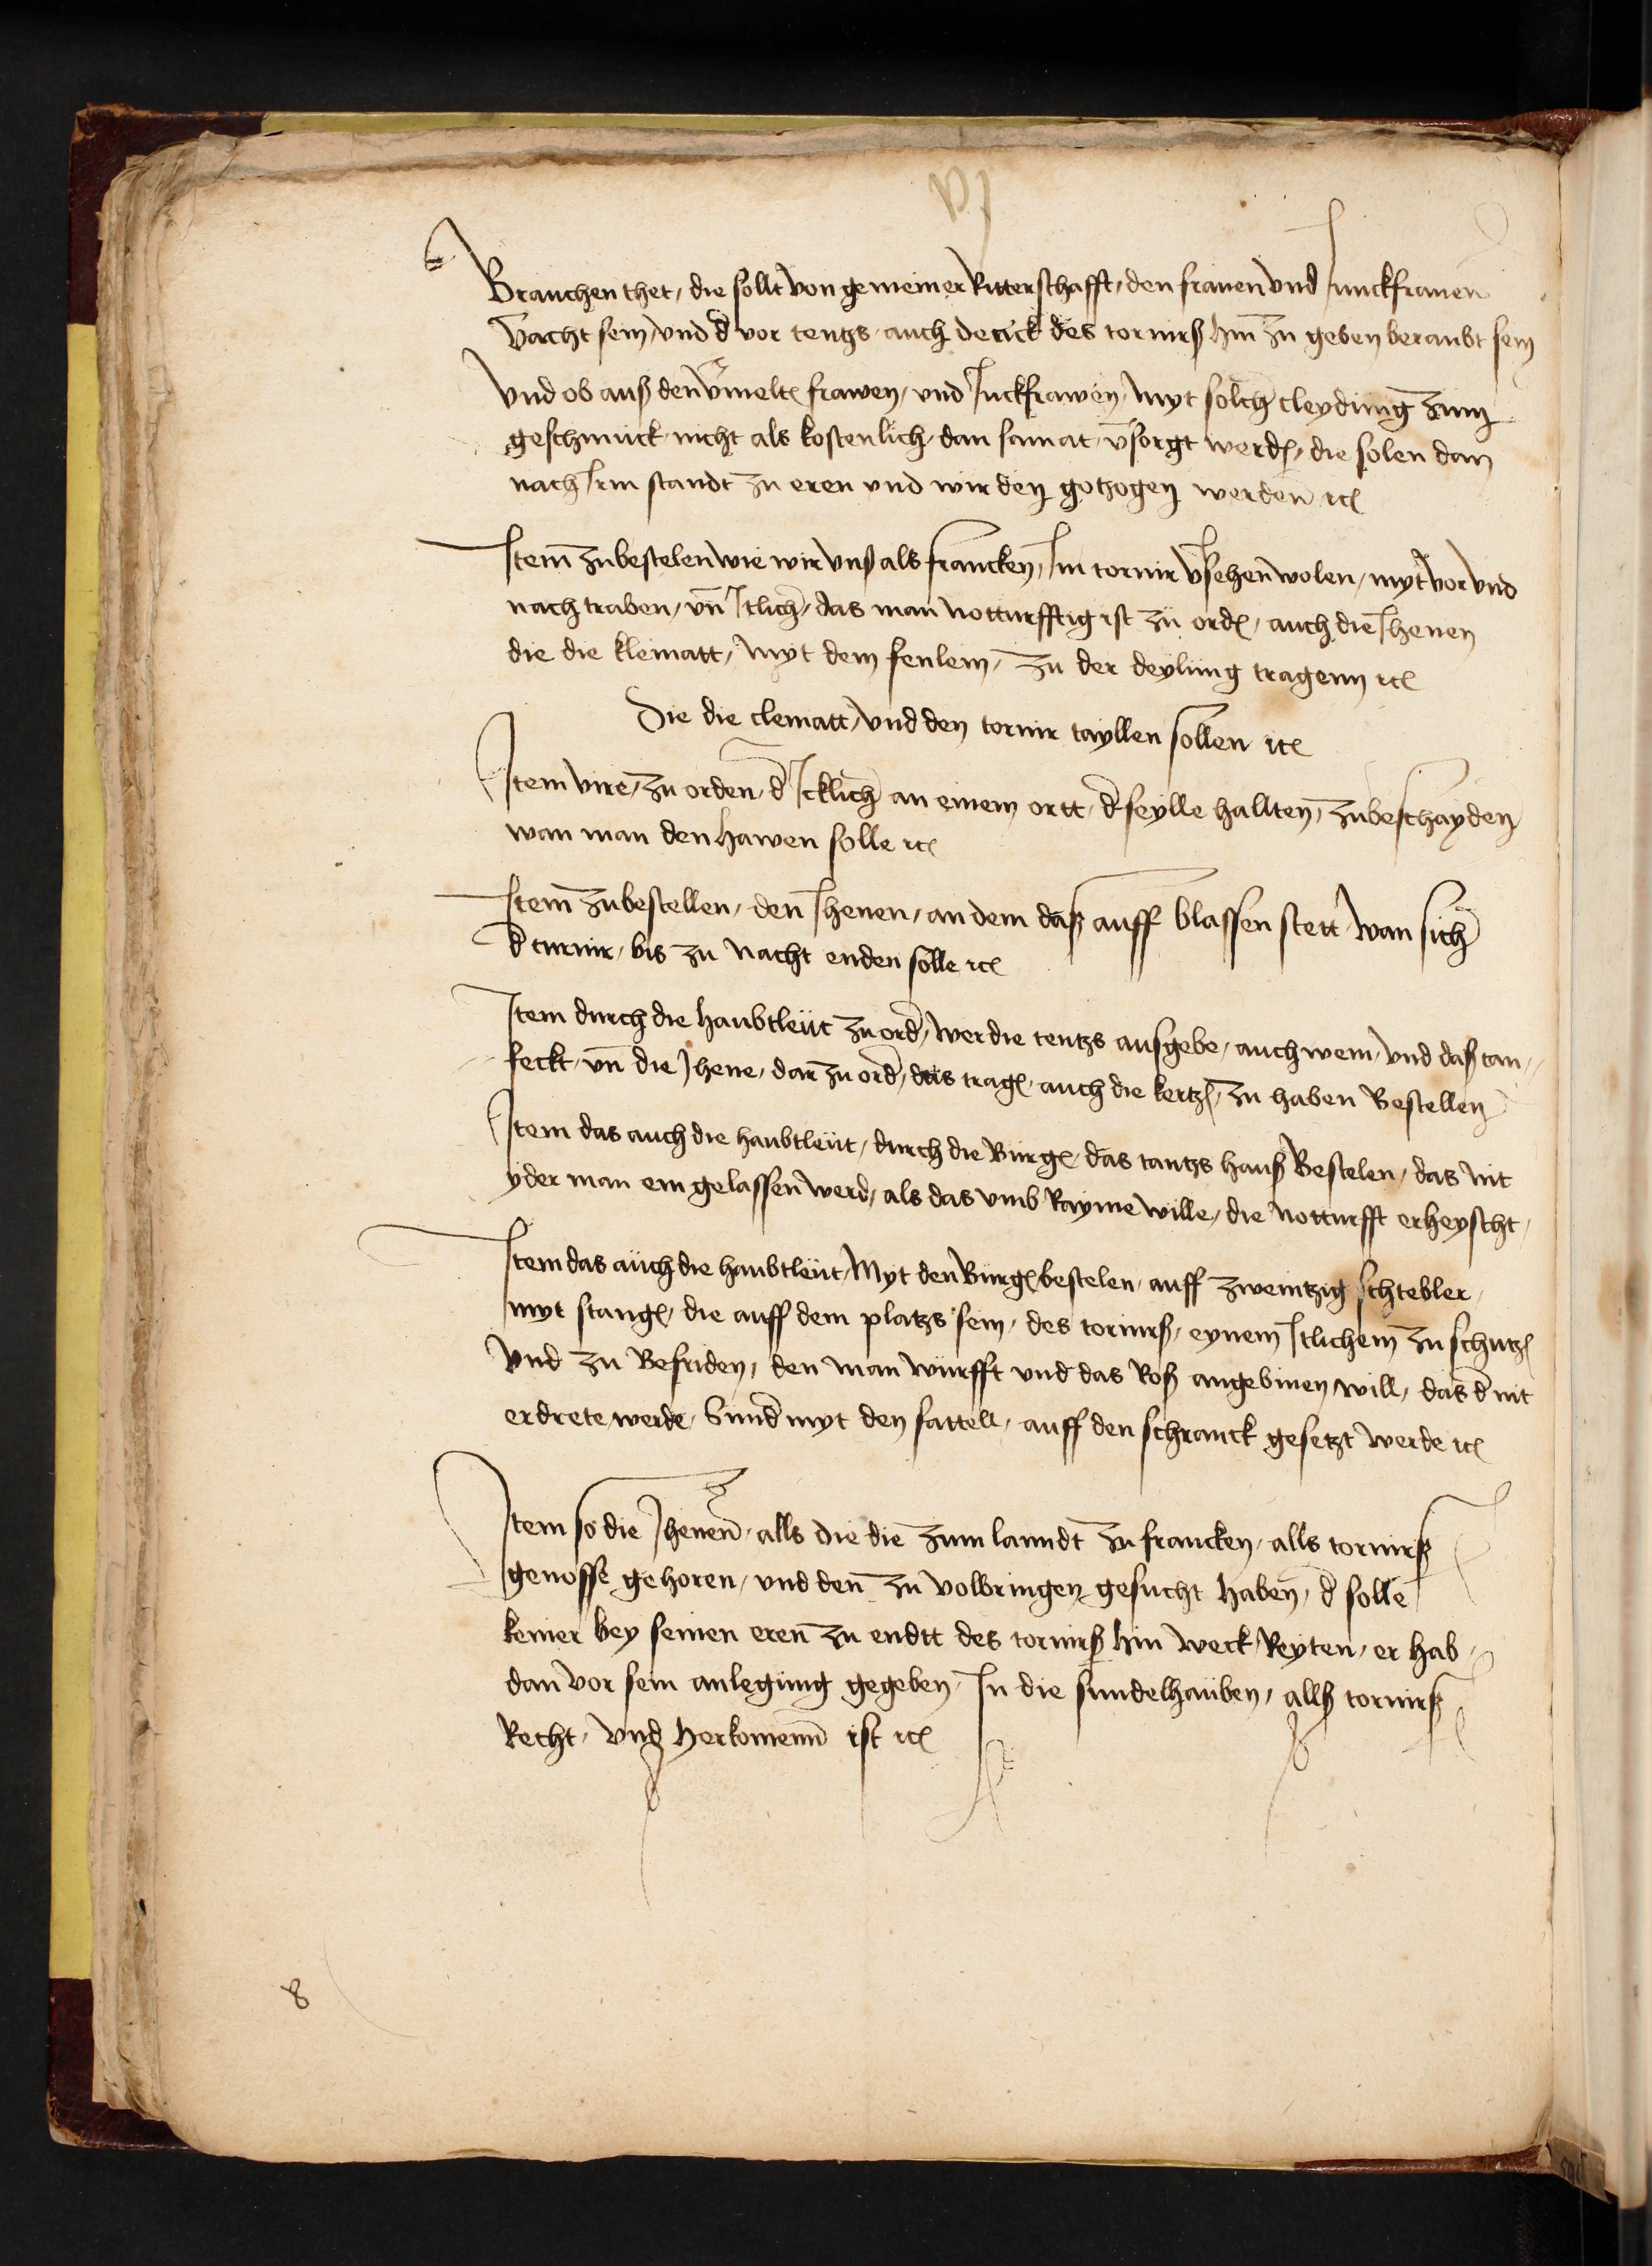 Brauchen thet, die sollt von gemeiner Ritterschafft, den frauen und Junckfrauen
v̄acht sein, und d̄ vor tentzs auch der ick des tornirß hin zu geben beraubt sein
Und ob auß den v̄melt frawen, und Juckfrawen, myt solch cleydung zum
geschmuck nicht als kostenlich, dan samat, v̄sorgt werd, die solen dan
nach Irm standt zu eren und wirden gotzogen werden ꝛc
Item zubestelen wie wir unß als francken, Im tornir v̄sehen wolen, myt vor und
nach traben, un̄ Itlich, das man notturfftig ist zu ord, auch die Jhenen
die die kleinatt, myt dem fenlein, zu der deylung tragenn ꝛc
Die die cleinatt, und den tornir tayllen sollen ꝛc
Item vire, zu orden, d̄ Icklich an einem ortt, d̄ seylle hallten, zubeschayden
wan man den hawen solle ꝛc
Item zubestellen, den Jhenen, an dem daß auff blassen stett, wan sich
d̄ turnir, bis zu nacht enden solle ꝛc
Item durch die haubtleut zu ord̄, wer die tentzs ausgebe, auch wem, und daß tan,
feckt, un̄ die Jhene, dar zu ord̄, das trag, auch die kertz, zu haben Bestellen
Item das auch die haubtleut, durch die Burg, das tantzs hauß Bestelen, das nit
yder man ein gelassen werd, als das umb Rayme wille, die notturfft erheyscht,
Item das auch die haubtleut, Myt den Burg bestelen, auff zweintzig schtebler,
myt stang, die auff dem platzs sein, des tornirß, eynem Itlichem zu schutz
und zu Befriden, den man wurfft und das Roß angebinen will, das d̄ nit
erdrete werde, Sund̄ myt den sattell, auff den schranck gesetzt werde ꝛc
Item so die Jhenen, alls die die zum lanndt zu francken, alls tornirß
genosse gehoren, und den zu volbringen gesucht haben, d̄ solle
keiner bey seinen eren zu endtt des tornirß hin weck Reyten, er hab,
dan vor sein anlegung gegeben, In die sundelhauben, allß tornirß
Recht, und herkomenn ist ꝛc
8